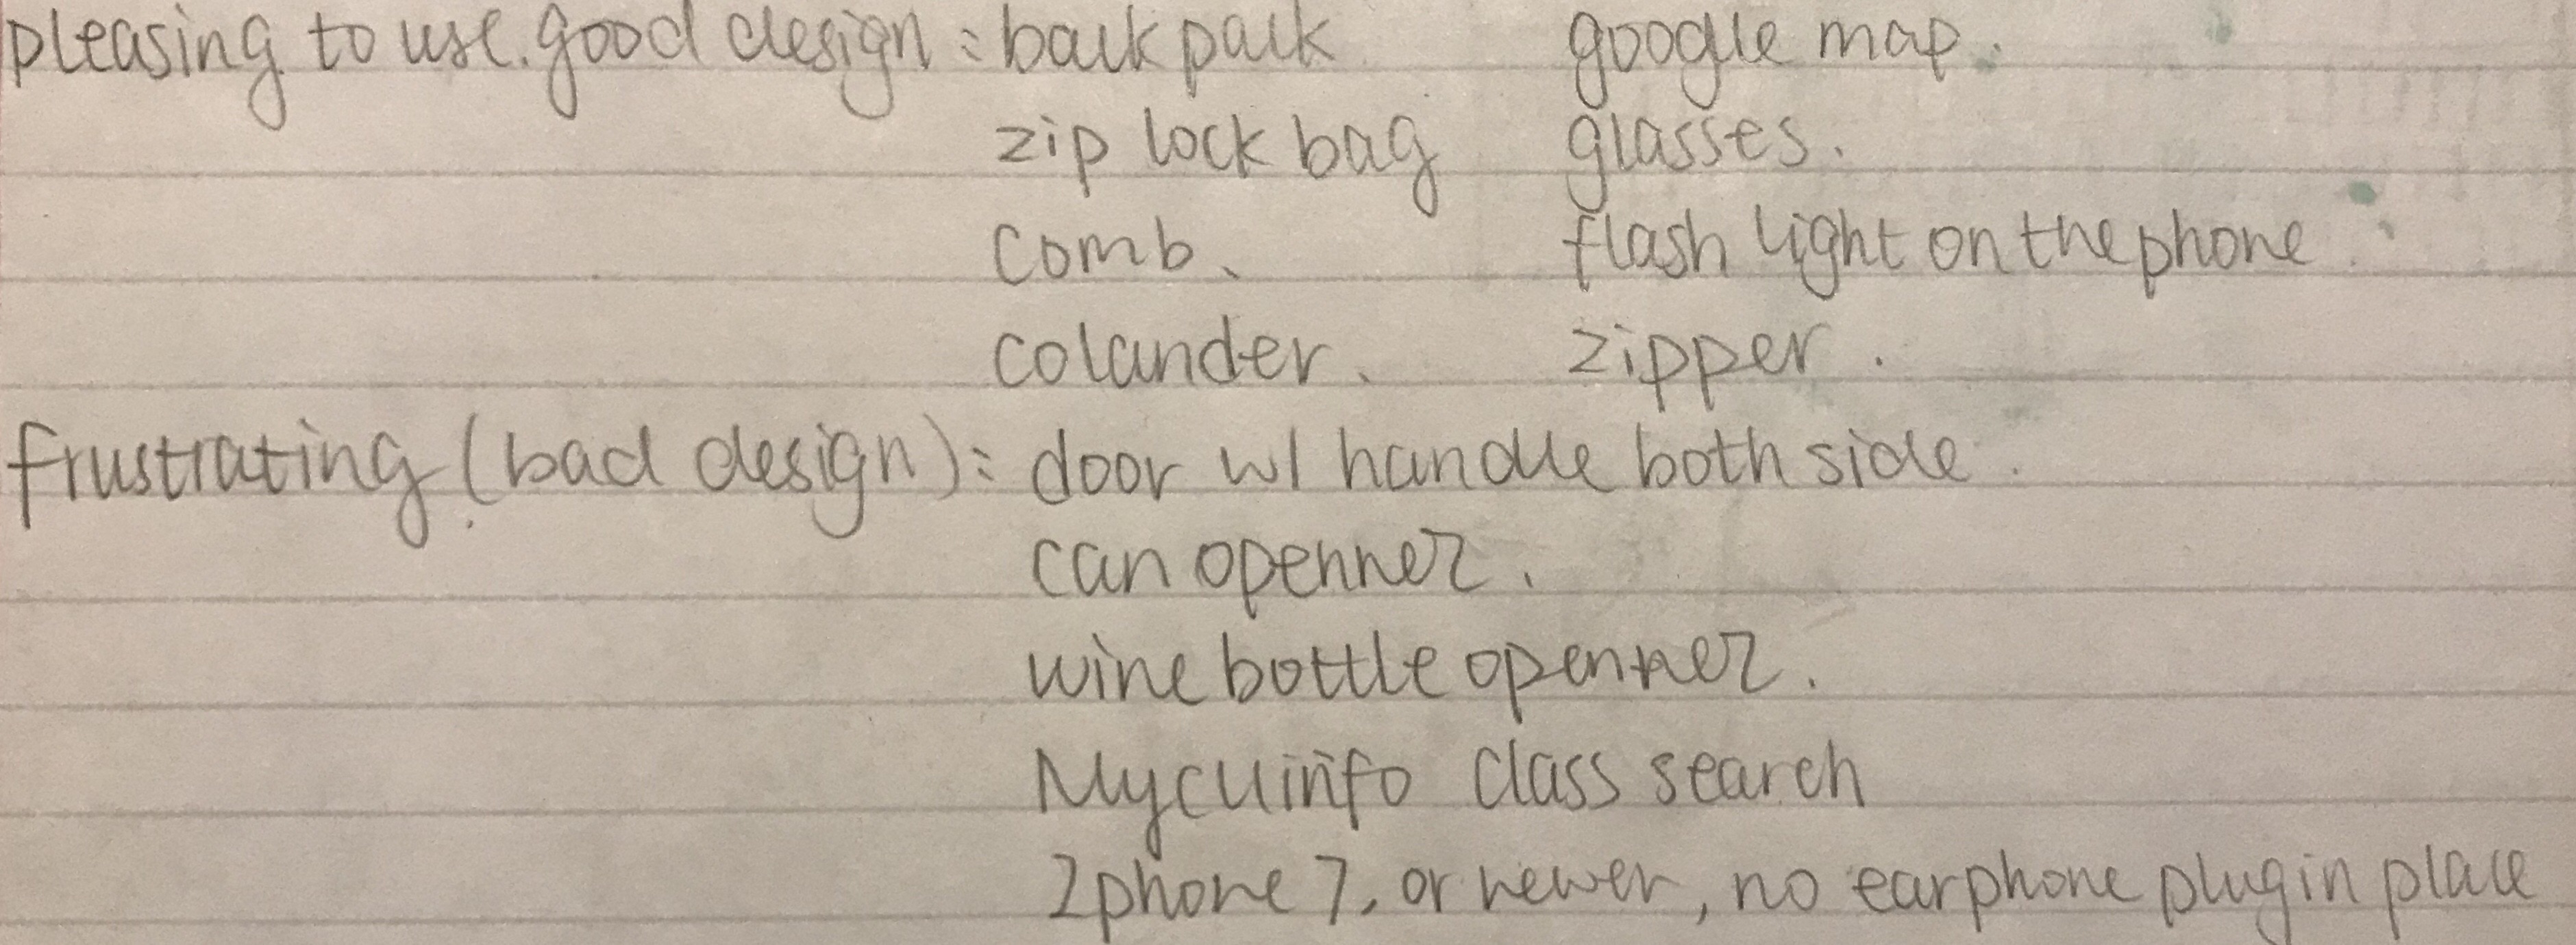 pleasing to use. good design : back pack google map.
zip lock bag glasses.
comb. flash light on the phone
colander. zipper.
frustrating (bad design): door w/ handle both side.
can openner.
wine bottle openner.
Mycuinfo class search
Iphone 7. or newer, no earphone plug in place